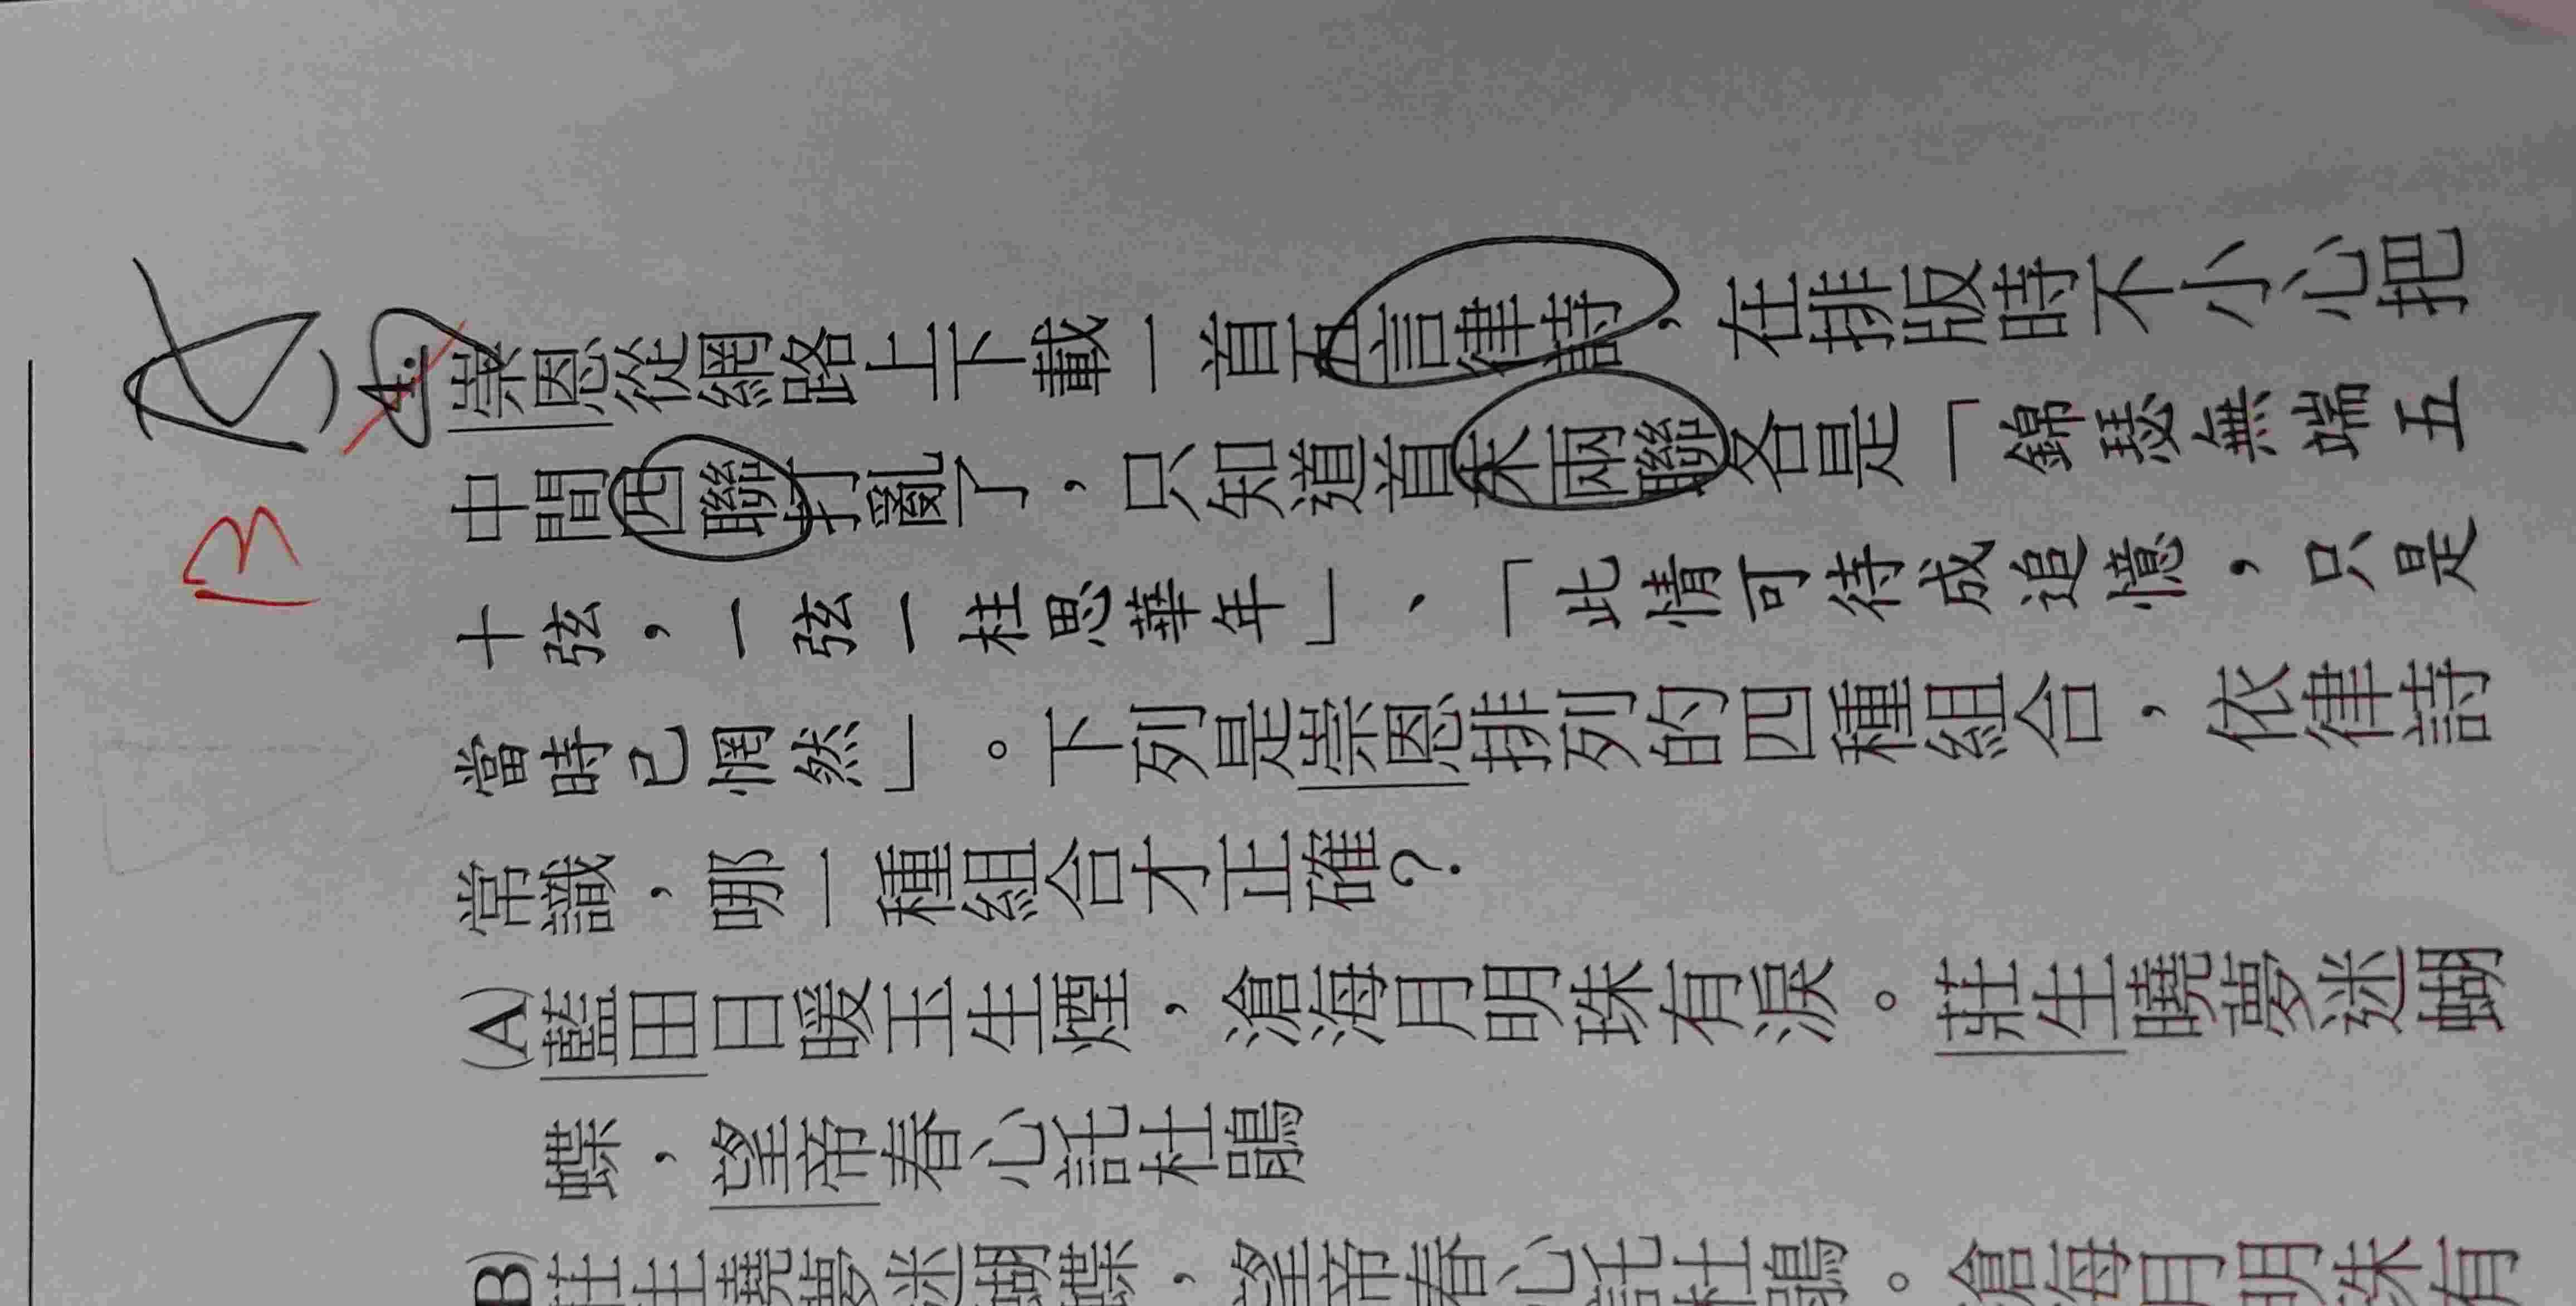 B
4. 崇恩從網路上下載一首五言律詩,在排版時不小心把
中間四聯打亂了,只知道首末兩聯各是「錦瑟無端五
十弦,一弦一柱思華年」、「此情可待成追憶,只是
當時已惘然」。下列是崇恩排列的四種組合,依律詩
常識,哪一種組合才正確?
(A)藍田日暖玉生煙,滄海月明珠有淚。莊生曉夢迷蝴
蝶,望帝春心託杜鵑
(B)莊生曉夢迷蝴蝶,望帝春心託杜鵑。滄海月明珠有